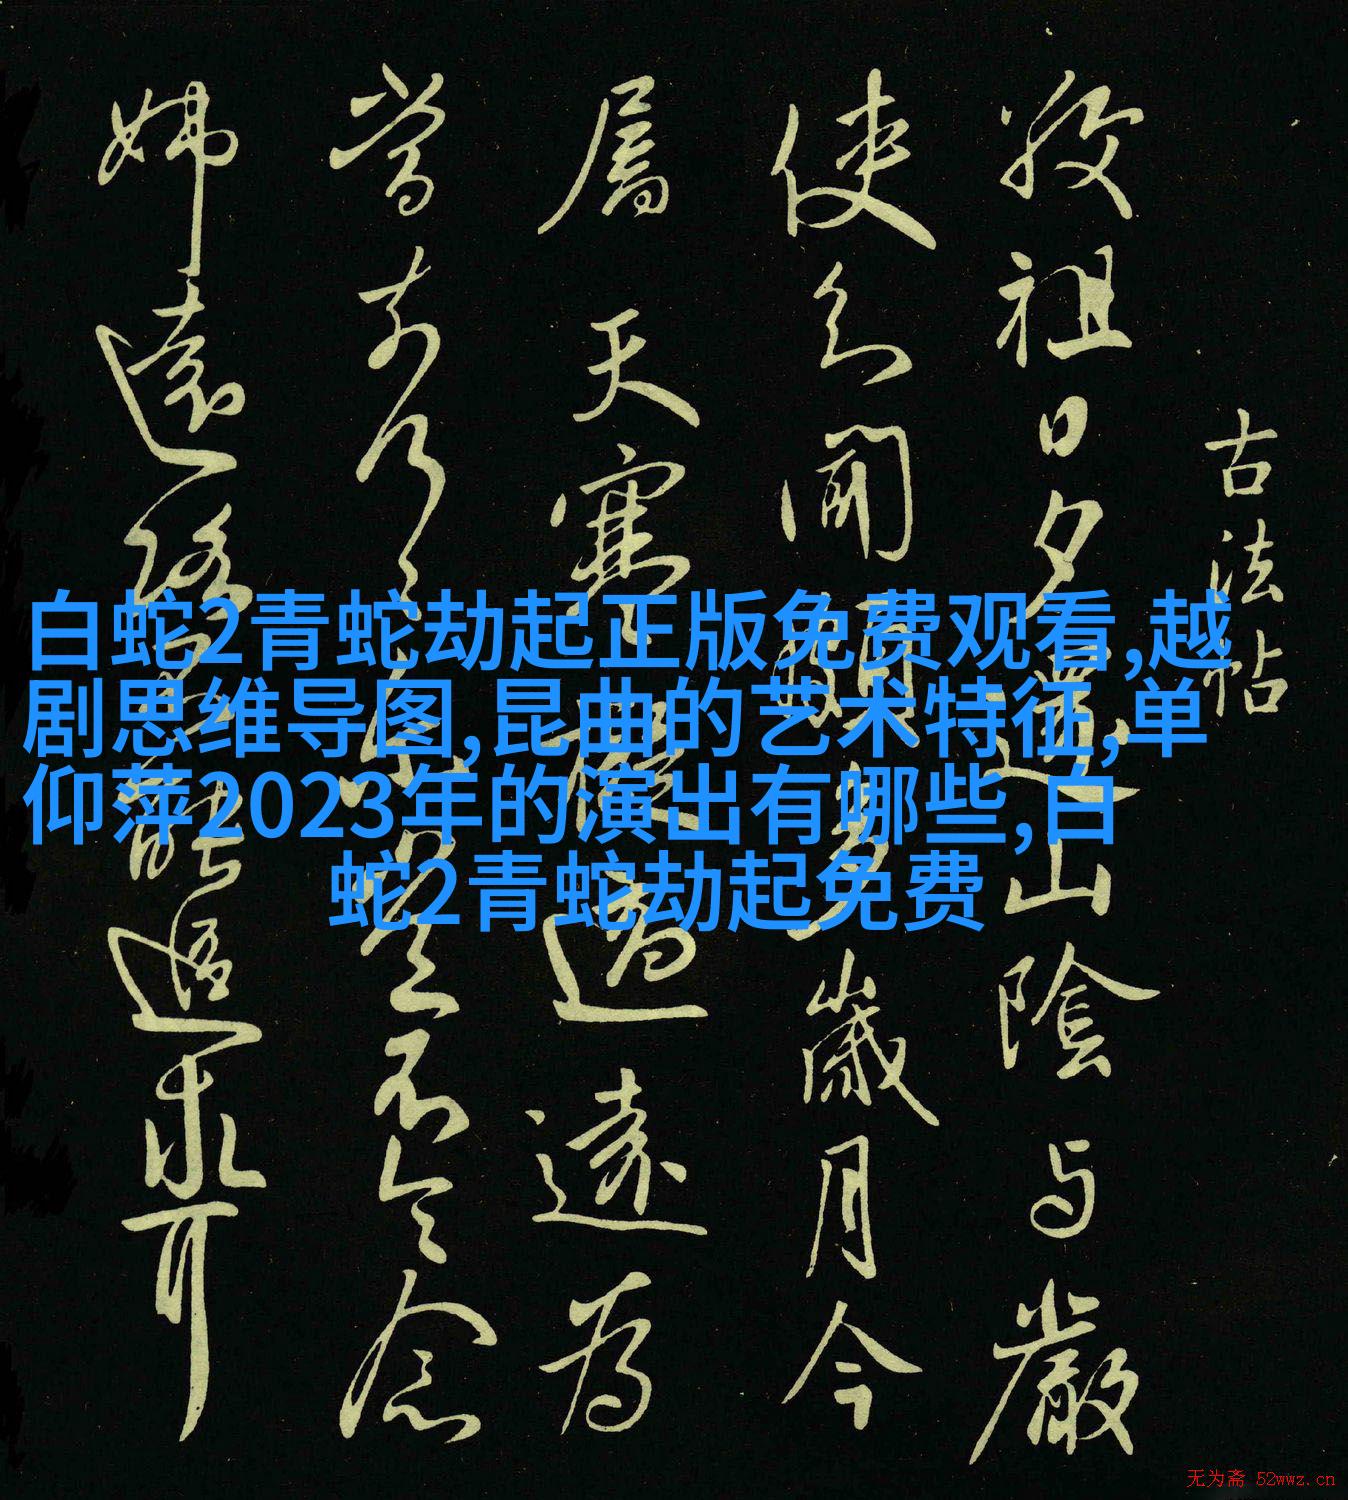 古法帖
敬祖日夕還山陰与嚴
使君聞頗多歲月今
屬天寒擬適遠為
當 不令念
姊遠路 耳
白蛇2青蛇劫起正版免费观看,越
剧思维导图,昆曲的艺术特征,单
仰萍2023年的演出有哪些,白
蛇2青蛇劫起免费
无为斋 52wwz.cn